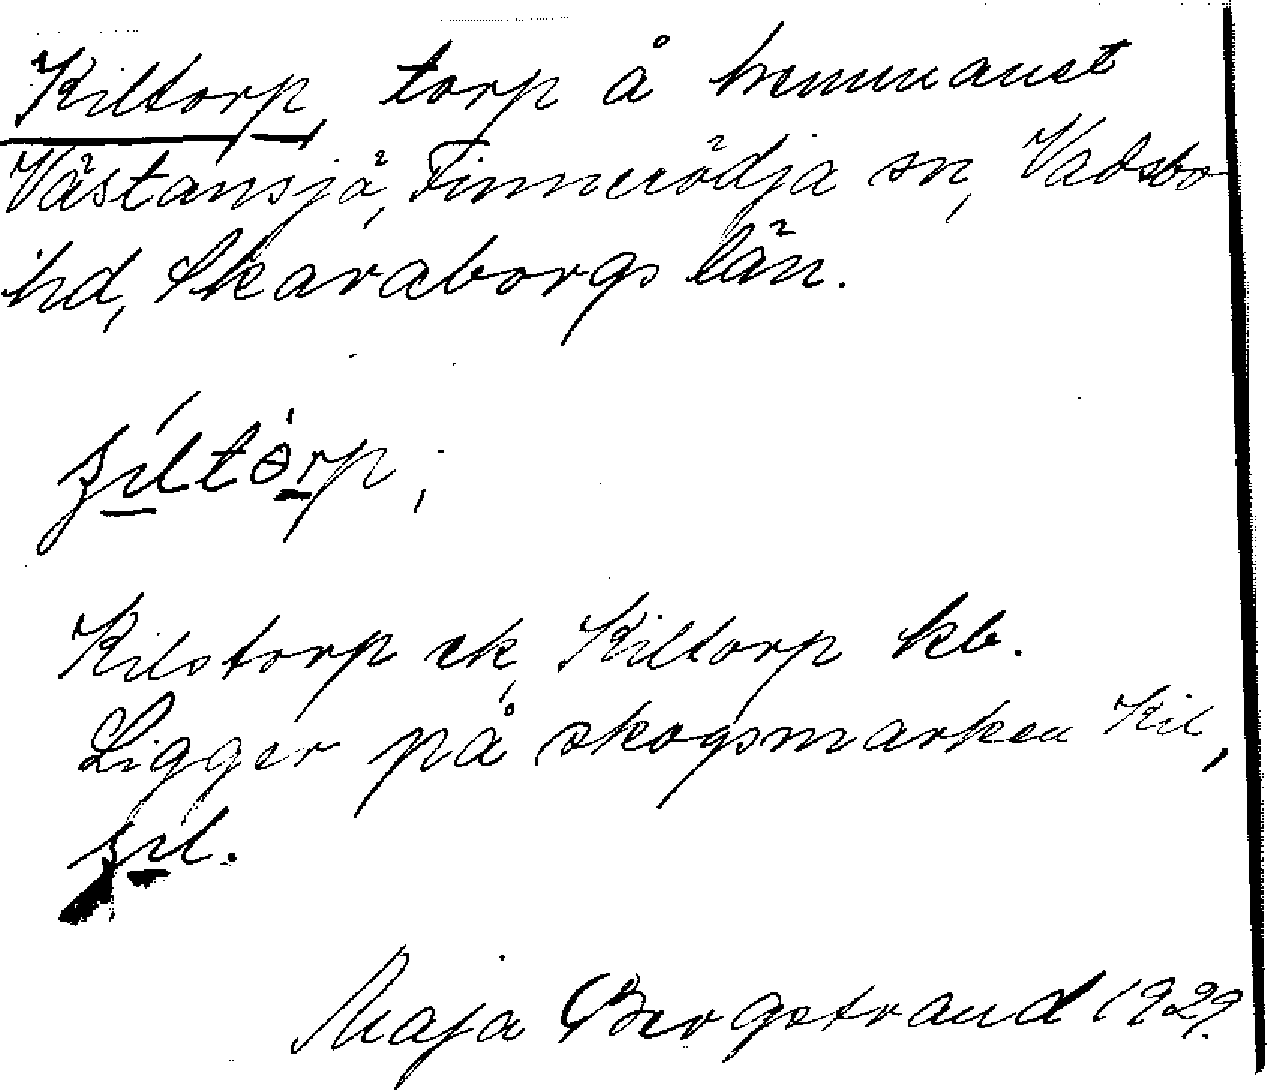 Kiltorp, torp å hemmanet
Västansjö, Finnerödja sn, Vadsbo
hd, Skaraborgs län.
Kilstorp ek, Kiltorp kb.
Ligger på skogsmarken Kil,
Maja Bergstrand 1929.